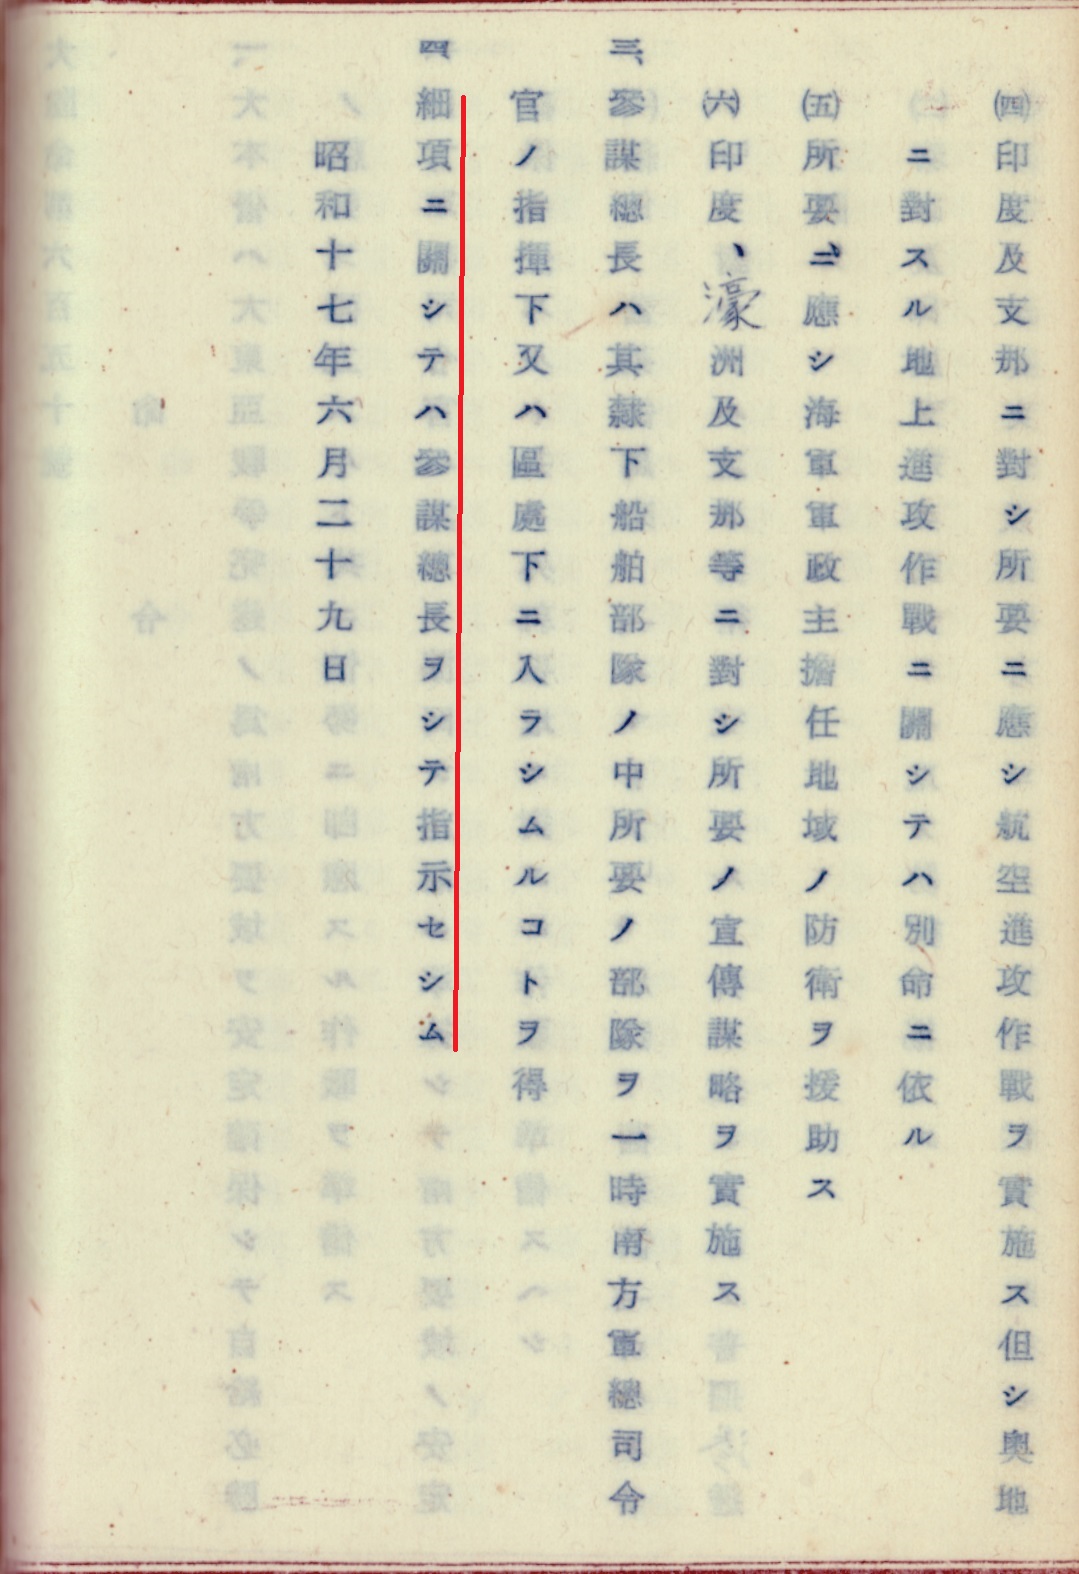 ㈣印度及支那ニ對シ所要ニ應シ航空進攻作戰ヲ實施ス但シ奧地
ニ對スル地上進攻作戰ニ關シテハ別命ニ依ル
㈤所要ニ應シ海軍軍政主擔任地域ノ防衛ヲ援助ス
㈥印度、濠洲及支那等ニ對シ所要ノ宣傳謀略ヲ實施ス
三、參謀總長ハ其隷下船舶部隊ノ中所要ノ部隊ヲ一時南方軍總司令
官ノ指揮下又ハ區處下ニ入ラシムルコトヲ得
四細項ニ關シテハ參謀總長ヲシテ指示セシム
昭和十七年六月二十九日